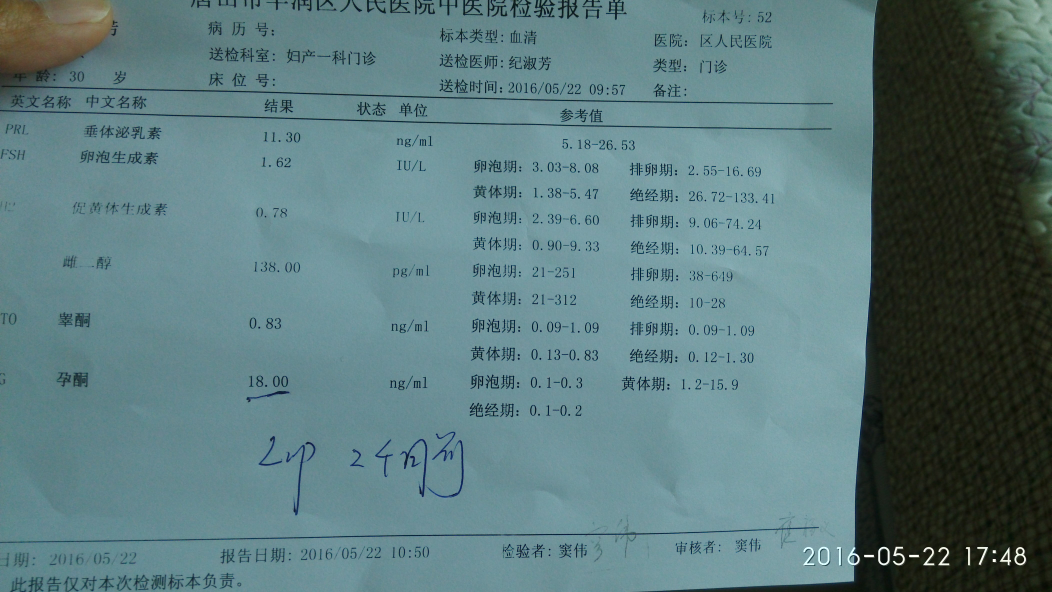 唐山市丰润区人民医院中医院检验报告单
标本号: 52
病 历 号:
标本类型: 血清
医院: 区人民医院
送检科室: 妇产一科门诊
送检医师: 纪淑芳
类型: 门诊
年 龄: 30 岁
床 位 号:
送检时间: 2016/05/22 09:57
备注:
英文名称 中文名称 结果 状态 单位 参考值
PRL 垂体泌乳素 11.30 ng/ml 5.18-26.53
FSH 卵泡生成素 1.62 IU/L 卵泡期: 3.03-8.08 排卵期: 2.55-16.69
黄体期: 1.38-5.47 绝经期: 26.72-133.41
促黄体生成素 0.78 IU/L 卵泡期: 2.39-6.60 排卵期: 9.06-74.24
黄体期: 0.90-9.33 绝经期: 10.39-64.57
雌二醇 138.00 pg/ml 卵泡期: 21-251 排卵期: 38-649
黄体期: 21-312 绝经期: 10-28
TO 睾酮 0.83 ng/ml 卵泡期: 0.09-1.09 排卵期: 0.09-1.09
黄体期: 0.13-0.83 绝经期: 0.12-1.30
G 孕酮 18.00 ng/ml 卵泡期: 0.1-0.3 黄体期: 1.2-15.9
绝经期: 0.1-0.2
2个月前
日期: 2016/05/22 报告日期: 2016/05/22 10:50 检验者: 窦伟 审核者: 窦伟
此报告仅对本次检测标本负责。
2016-05-22 17:48